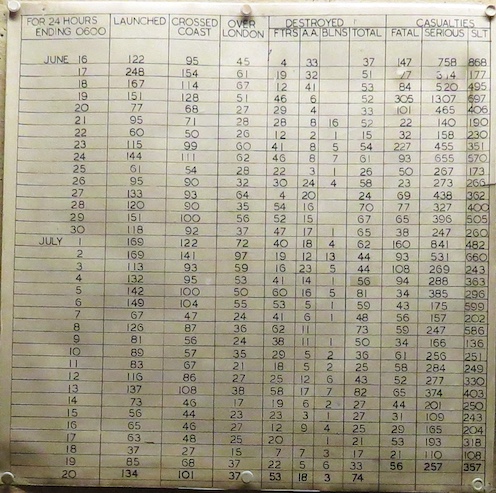 FOR 24 HOURS LAUNCHED CROSSED OVER DESTROYED CASUALTIES
ENDING 0600 COAST LONDON FTRS A.A. BLNS TOTAL FATAL SERIOUS SLT
JUNE 16 122 95 45 4 33 37 147 758 868
17 248 154 61 19 32 51 177
18 167 114 67 12 41 53 84 520 495
19 151 128 51 46 6 52 305 1307 697
20 77 68 27 29 4 33 101 465 406
21 95 71 28 28 8 16 52 22 140 190
22 60 50 26 12 2 1 15 32 158 230
23 115 99 60 41 8 5 54 227 455 351
24 144 111 62 46 8 7 61 93 655 570
25 61 54 28 22 3 1 26 50 267 173
26 95 90 32 30 24 4 58 23 273 266
27 133 93 64 4 20 24 69 438 362
28 120 90 35 54 16 70 77 327 400
29 151 100 56 52 15 67 65 396 505
30 118 92 37 47 17 1 65 38 247 260
JULY 1 169 122 72 40 18 4 62 160 841 482
2 169 141 97 19 12 13 44 93 531 660
3 113 93 59 16 23 5 44 108 269 243
4 132 95 53 41 14 1 56 94 288 363
5 142 100 50 60 16 5 81 34 385 296
6 149 104 55 53 5 1 59 43 175 599
7 67 47 24 41 6 1 48 56 157 202
8 126 87 36 62 11 73 59 247 586
9 81 56 24 38 11 1 50 34 166 136
10 89 57 35 29 5 2 36 61 256 251
11 83 67 21 18 5 2 25 58 284 249
12 116 86 27 25 12 6 43 52 277 330
13 137 108 38 58 17 7 82 65 374 403
14 73 46 17 19 6 2 27 44 201 250
15 56 44 23 23 3 1 27 31 109 243
16 65 46 27 12 9 4 25 29 165 204
17 63 48 25 20 1 21 53 193 318
18 37 27 15 7 7 3 17 21 110 108
19 85 68 37 22 5 6 33 56 257 357
20 134 101 37 53 18 3 74